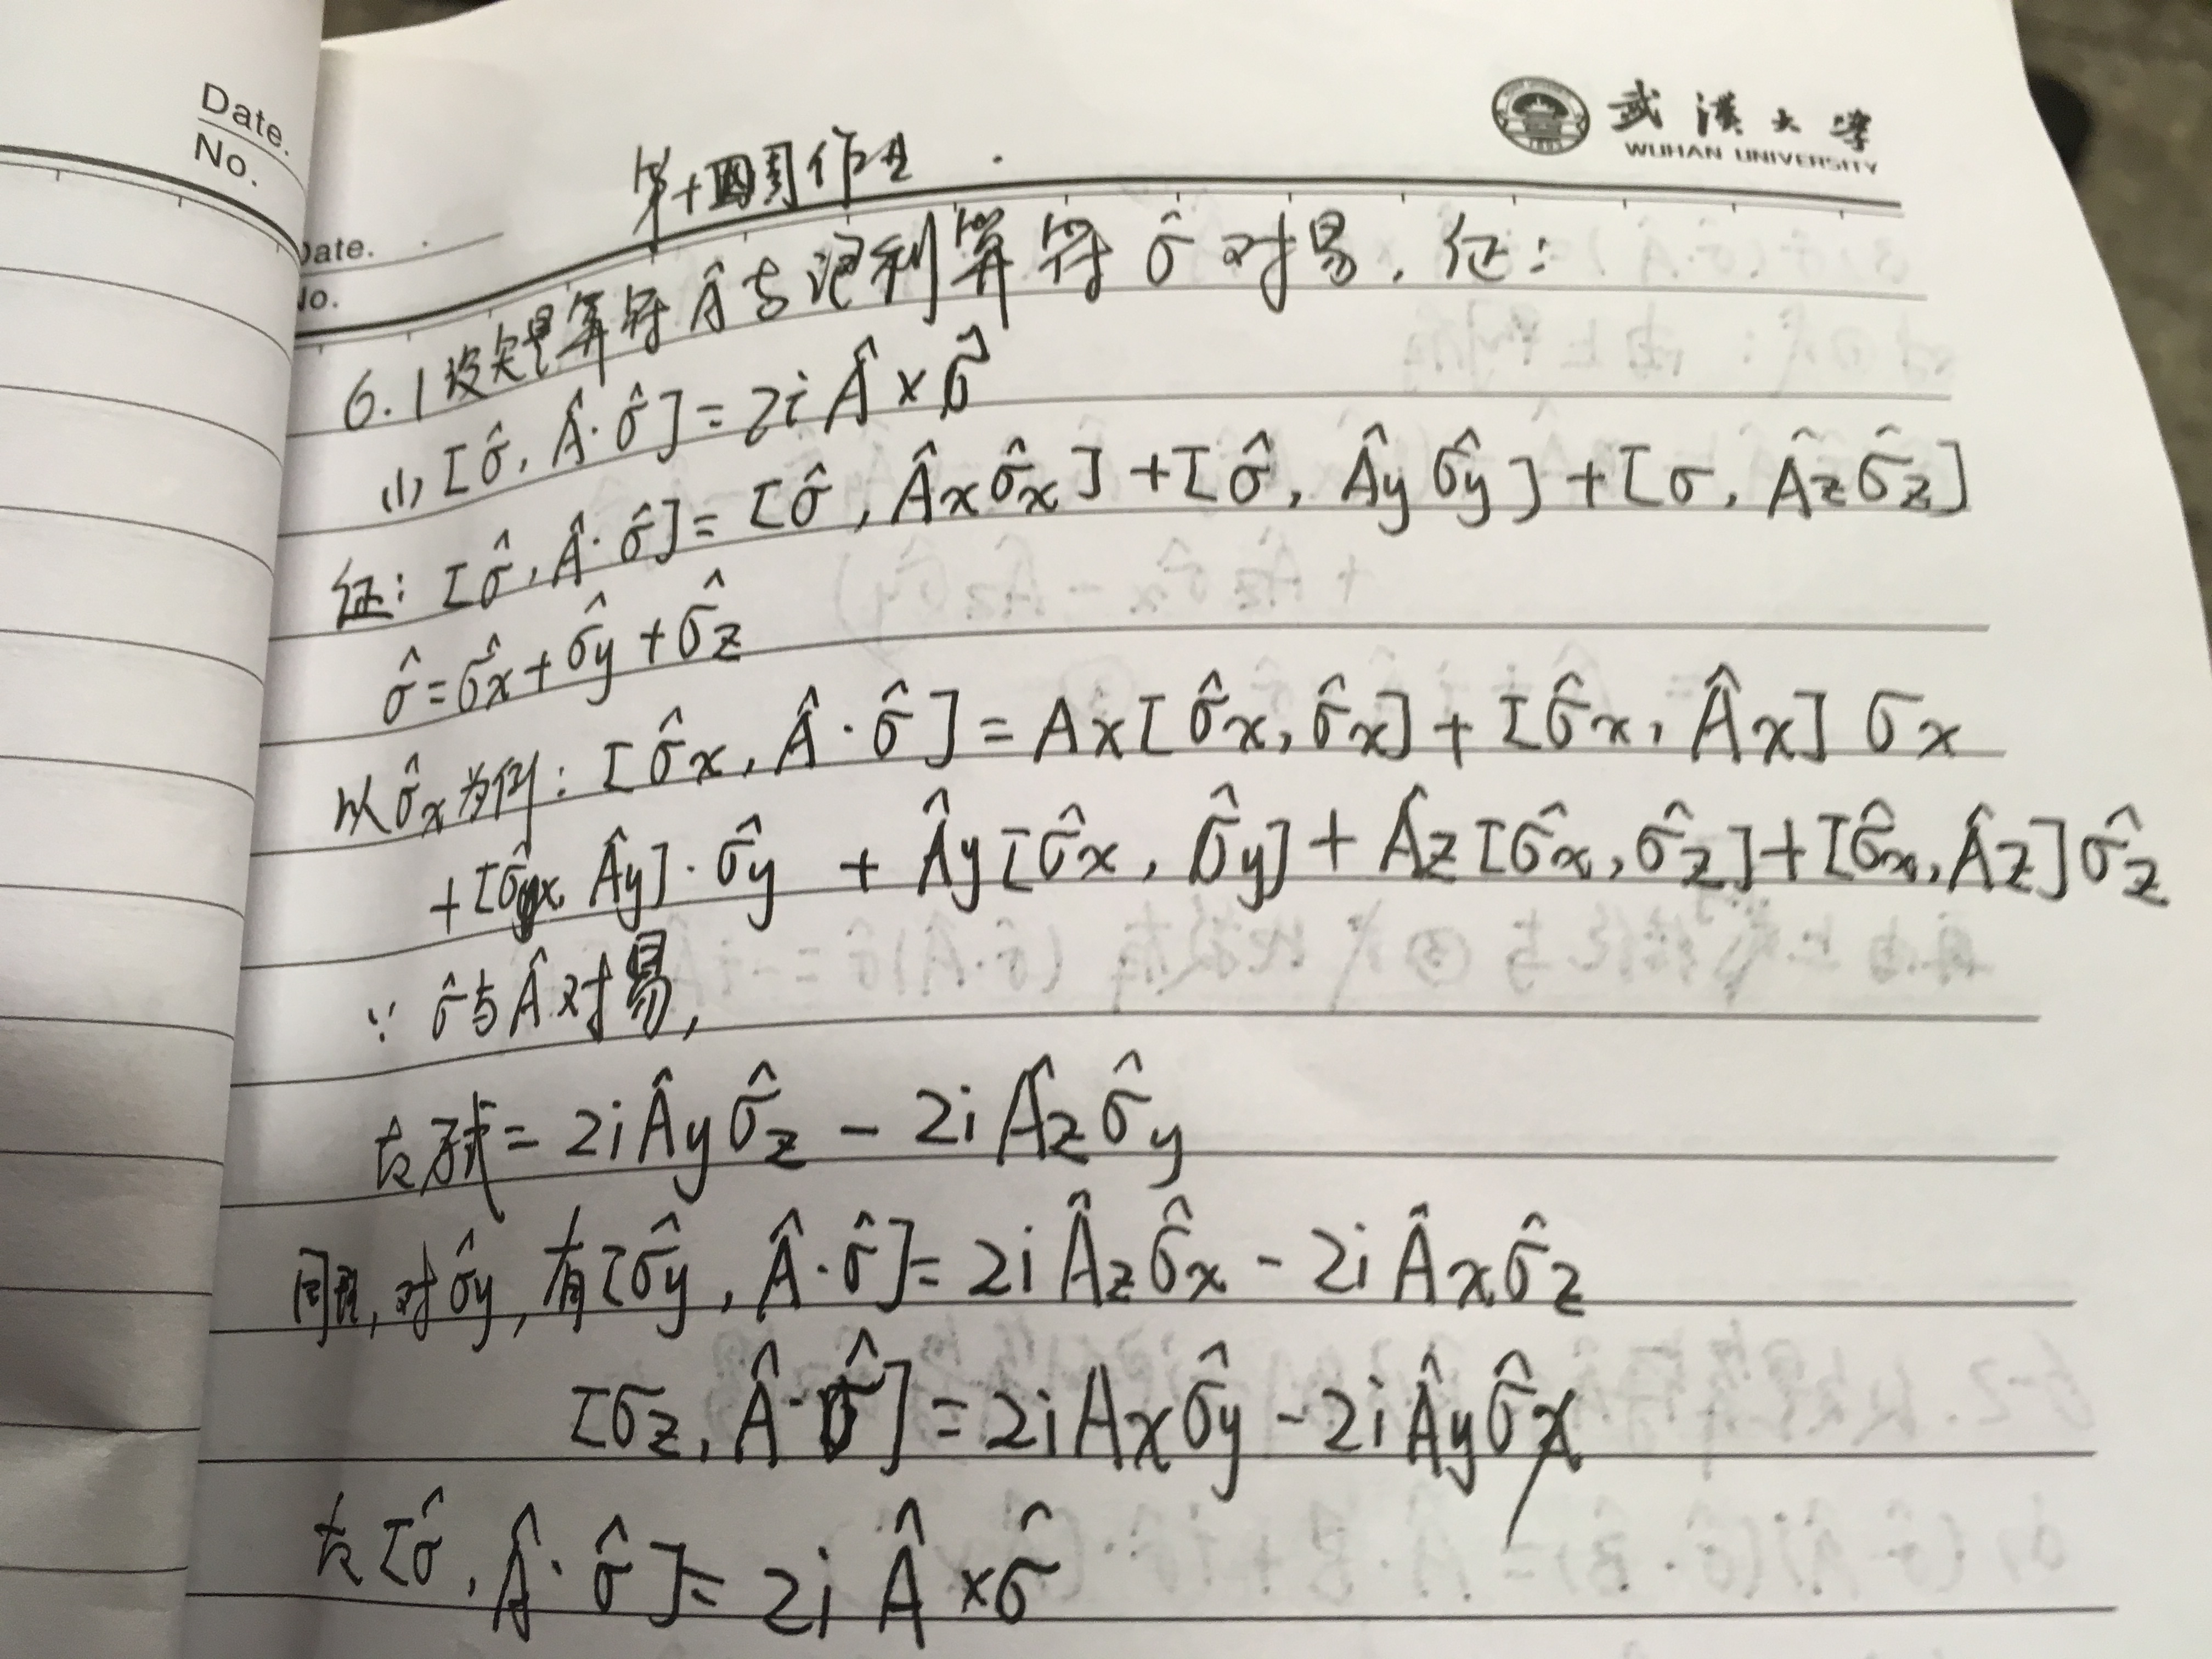 Date.
No.
武汉大学
WUHAN UNIVERSITY
第十四周作业
Date.
No.
6.1 设矢量算符 Â 与泡利算符 σ̂ 对易. 证:
(1) [σ̂, Â·σ̂] = 2i Â×σ̂
证: [σ̂, Â·σ̂] = [σ̂, Âxσ̂x] + [σ̂, Âyσ̂y] + [σ, Âzσ̂z]
σ̂ = σ̂x + σ̂y + σ̂z
以σ̂x为例: [σ̂x, Â·σ̂] = Ax[σ̂x, σ̂x] + [σ̂x, Âx] σx
+ [σ̂x, Ây]·σ̂y + Ây[σ̂x, σ̂y] + Âz[σ̂x, σ̂z] + [σ̂x, Âz]σ̂z
∵ σ̂与Â对易,
故 = 2iÂyσ̂z − 2iÂzσ̂y
同理, 对σ̂y, 有[σ̂y, Â·σ̂] = 2iÂzσ̂x − 2iÂxσ̂z
[σz, Â·σ̂] = 2iAxσ̂y − 2iÂyσ̂x
故[σ̂, Â·σ̂] = 2i Â×σ̂